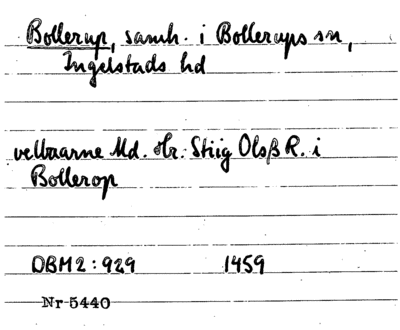 Bollerup, samh. i Bollerups sn,
Ingelstads hd
velbaarne Md. Hr. Stiig Olsß R. i
Bollerop
DBM2:929 1459
Nr 5440